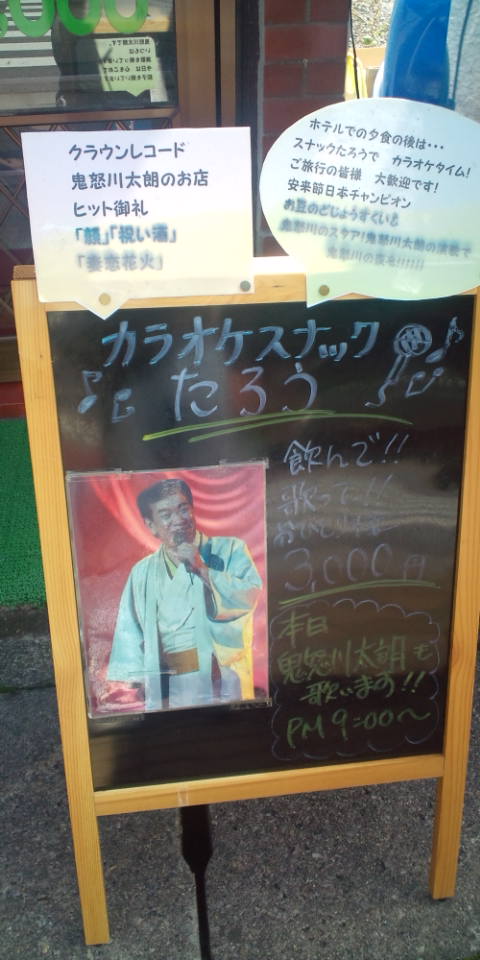 クラウンレコード
鬼怒川太朗のお店
ヒット御礼
「顔」「祝い酒」
「妻恋花火」
ホテルでの夕食の後は・・・
スナックたろうで カラオケタイム!
ご旅行の皆様 大歓迎です!
安来節日本チャンピオン
お豆のどじょうすくい&
鬼怒川のスタア!鬼怒川太朗の演歌で
鬼怒川の夜を!!!!!!
カラオケスナック
たろう
飲んで!!
歌って!!
3,000円
本日
鬼怒川太朗も
歌います!!
PM 9:00〜